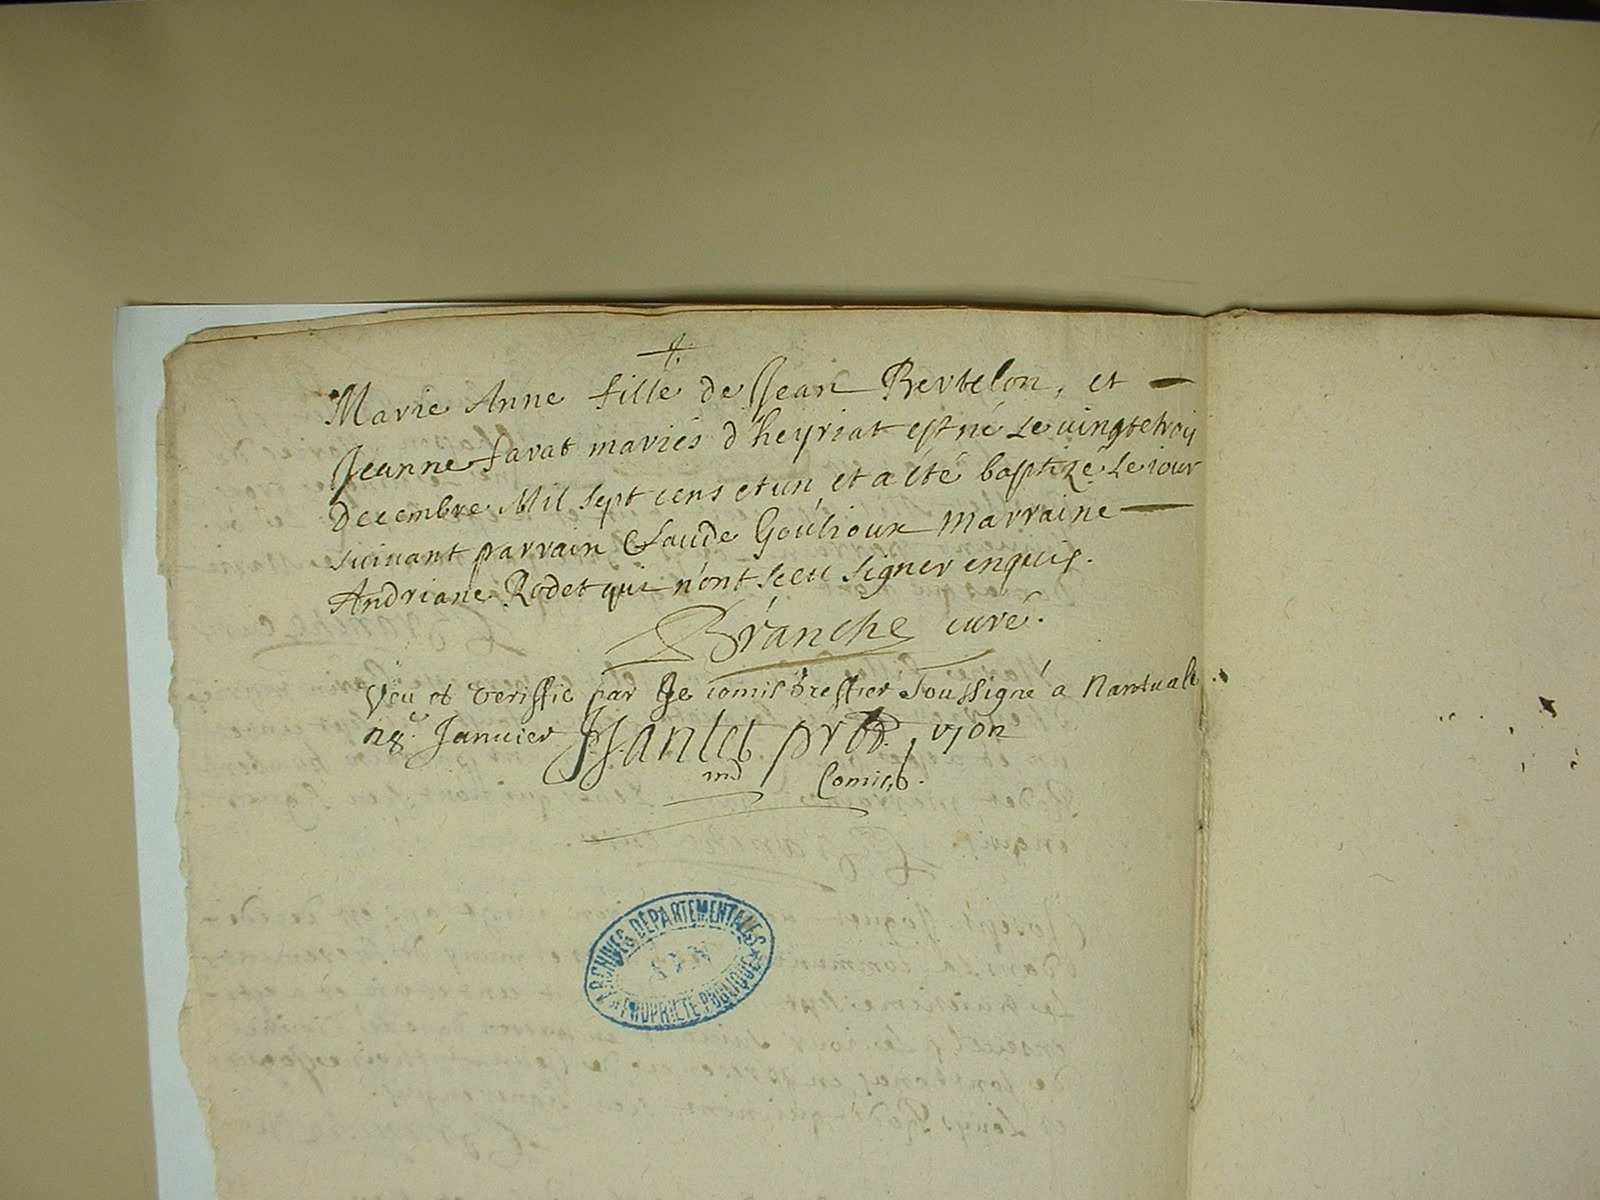 Marie Anne fille de Jean Bertelon, et
Jeanne favat mariés d'heyriat est né le uingtetroij
Decembre Mil sept cens et un, et a été baptizé le iour
suiuant parrain Claude Goulioux Marraine
Andriane Rodet qui n'ont sceu signer enquis.
Branche curé.
Veu et veriffié par Je comis Greffier Soussigné a Nantua le
28e Januier 1702
Comis.
ARCHIVES DÉPARTEMENTALES
PROPRIÉTÉ PUBLIQUE